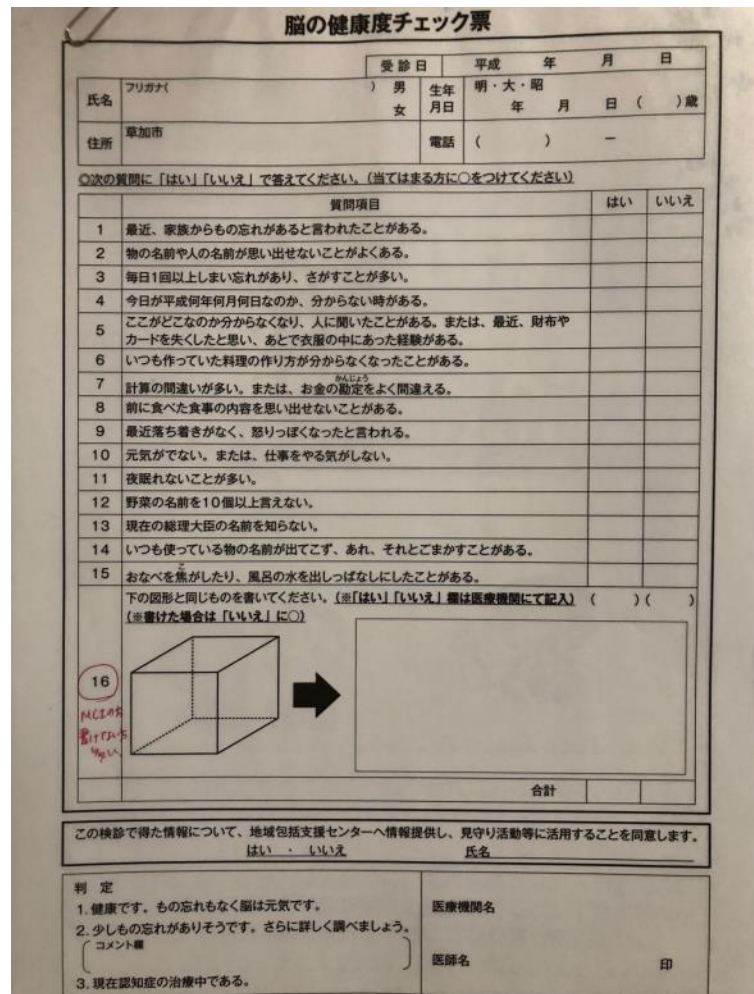 脳の健康度チェック票
受診日 平成 年 月 日
氏名 フリガナ( ) 男 女 生年月日 明・大・昭 年 月 日 ( )歳
住所 草加市 電話 ( ) −
◎次の質問に「はい」「いいえ」で答えてください。(当てはまる方に○をつけてください)
質問項目 はい いいえ
1 最近、家族からもの忘れがあると言われたことがある。
2 物の名前や人の名前が思い出せないことがよくある。
3 毎日1回以上しまい忘れがあり、さがすことが多い。
4 今日が平成何年何月何日なのか、分からない時がある。
5 ここがどこなのか分からなくなり、人に聞いたことがある。または、最近、財布や
カードを失くしたと思い、あとで衣服の中にあった経験がある。
6 いつも作っていた料理の作り方が分からなくなったことがある。
かんじょう
7 計算の間違いが多い。または、お金の勘定をよく間違える。
8 前に食べた食事の内容を思い出せないことがある。
9 最近落ち着きがなく、怒りっぽくなったと言われる。
10 元気がでない。または、仕事をやる気がしない。
11 夜眠れないことが多い。
12 野菜の名前を10個以上言えない。
13 現在の総理大臣の名前を知らない。
14 いつも使っている物の名前が出てこず、あれ、それとごまかすことがある。
こ
15 おなべを焦がしたり、風呂の水を出しっぱなしにしたことがある。
下の図形と同じものを書いてください。(※「はい」「いいえ」欄は医療機関にて記入) ( )( )
(※書けた場合は「いいえ」に○)
16
MCIの方
書けない方
合計
この検診で得た情報について、地域包括支援センターへ情報提供し、見守り活動等に活用することを同意します。
はい ・ いいえ 氏名
判 定
1. 健康です。もの忘れもなく脳は元気です。
2. 少しもの忘れがありそうです。さらに詳しく調べましょう。
コメント欄
3. 現在認知症の治療中である。
医療機関名
医師名 印